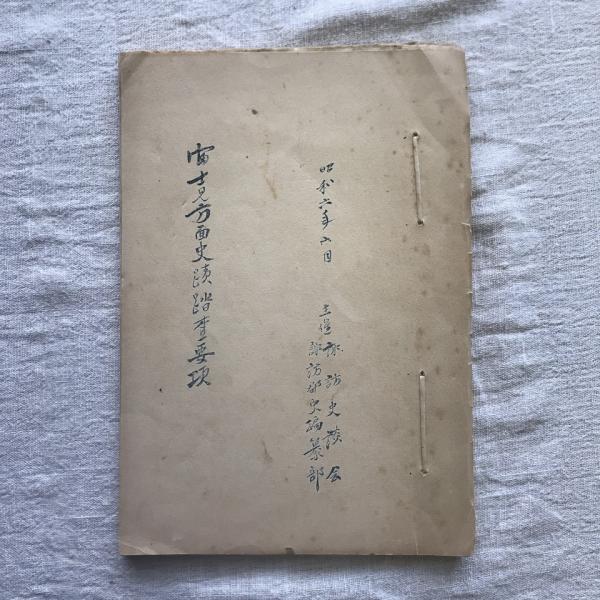 昭和六年八月
主催 諏訪史談会
諏訪郡史編纂部
富士見方面史蹟踏査要項